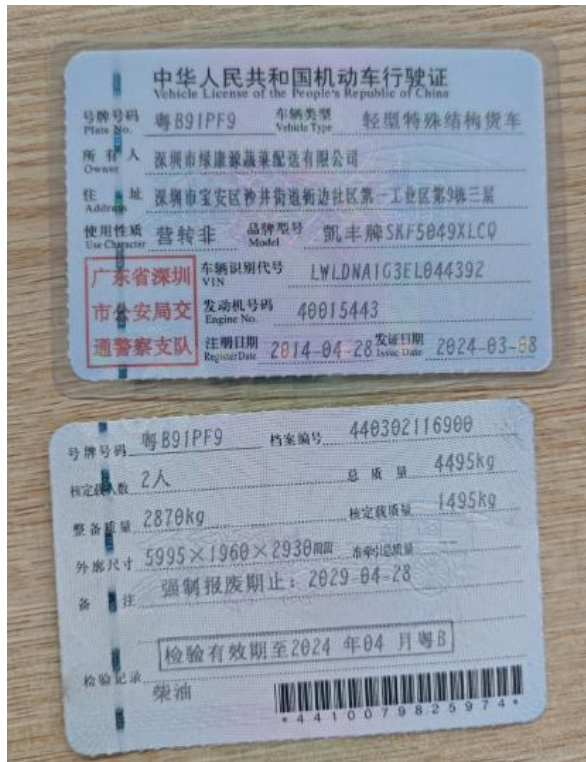 中华人民共和国机动车行驶证
Vehicle License of the People's Republic of China
号牌号码 Plate No. 粤B91PF9 车辆类型 Vehicle Type 轻型特殊结构货车
所有人 Owner 深圳市绿康源蔬菜配送有限公司
住址 Address 深圳市宝安区沙井街道蚝边社区第一工业区第9栋三层
使用性质 Use Character 营转非 品牌型号 Model 凯丰牌SKF5049XLCQ
广东省深圳
市公安局交
通警察支队
车辆识别代号 VIN LWLDNA1G3EL044392
发动机号码 Engine No. 40015443
注册日期 Register Date 2014-04-28 发证日期 Issue Date 2024-03-08
号牌号码 粤B91PF9 档案编号 440302116900
核定载人数 2人 总质量 4495kg
整备质量 2870kg 核定载质量 1495kg
外廓尺寸 5995×1960×2930mm 准牵引总质量
备注 强制报废期止：2029-04-28
检验有效期至2024年04月粤B
检验记录
柴油
*4410079825974*